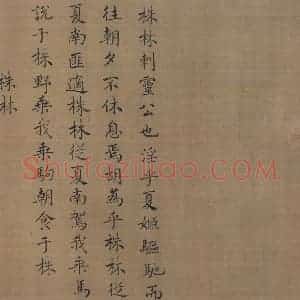 株林刺靈公也淫乎夏姬驅馳而
往朝夕不休息焉胡為乎株林從
夏南匪適株林從夏南駕我乘馬
說于株野乘我乘駒朝食于株
株林
Shufaziliao.COM